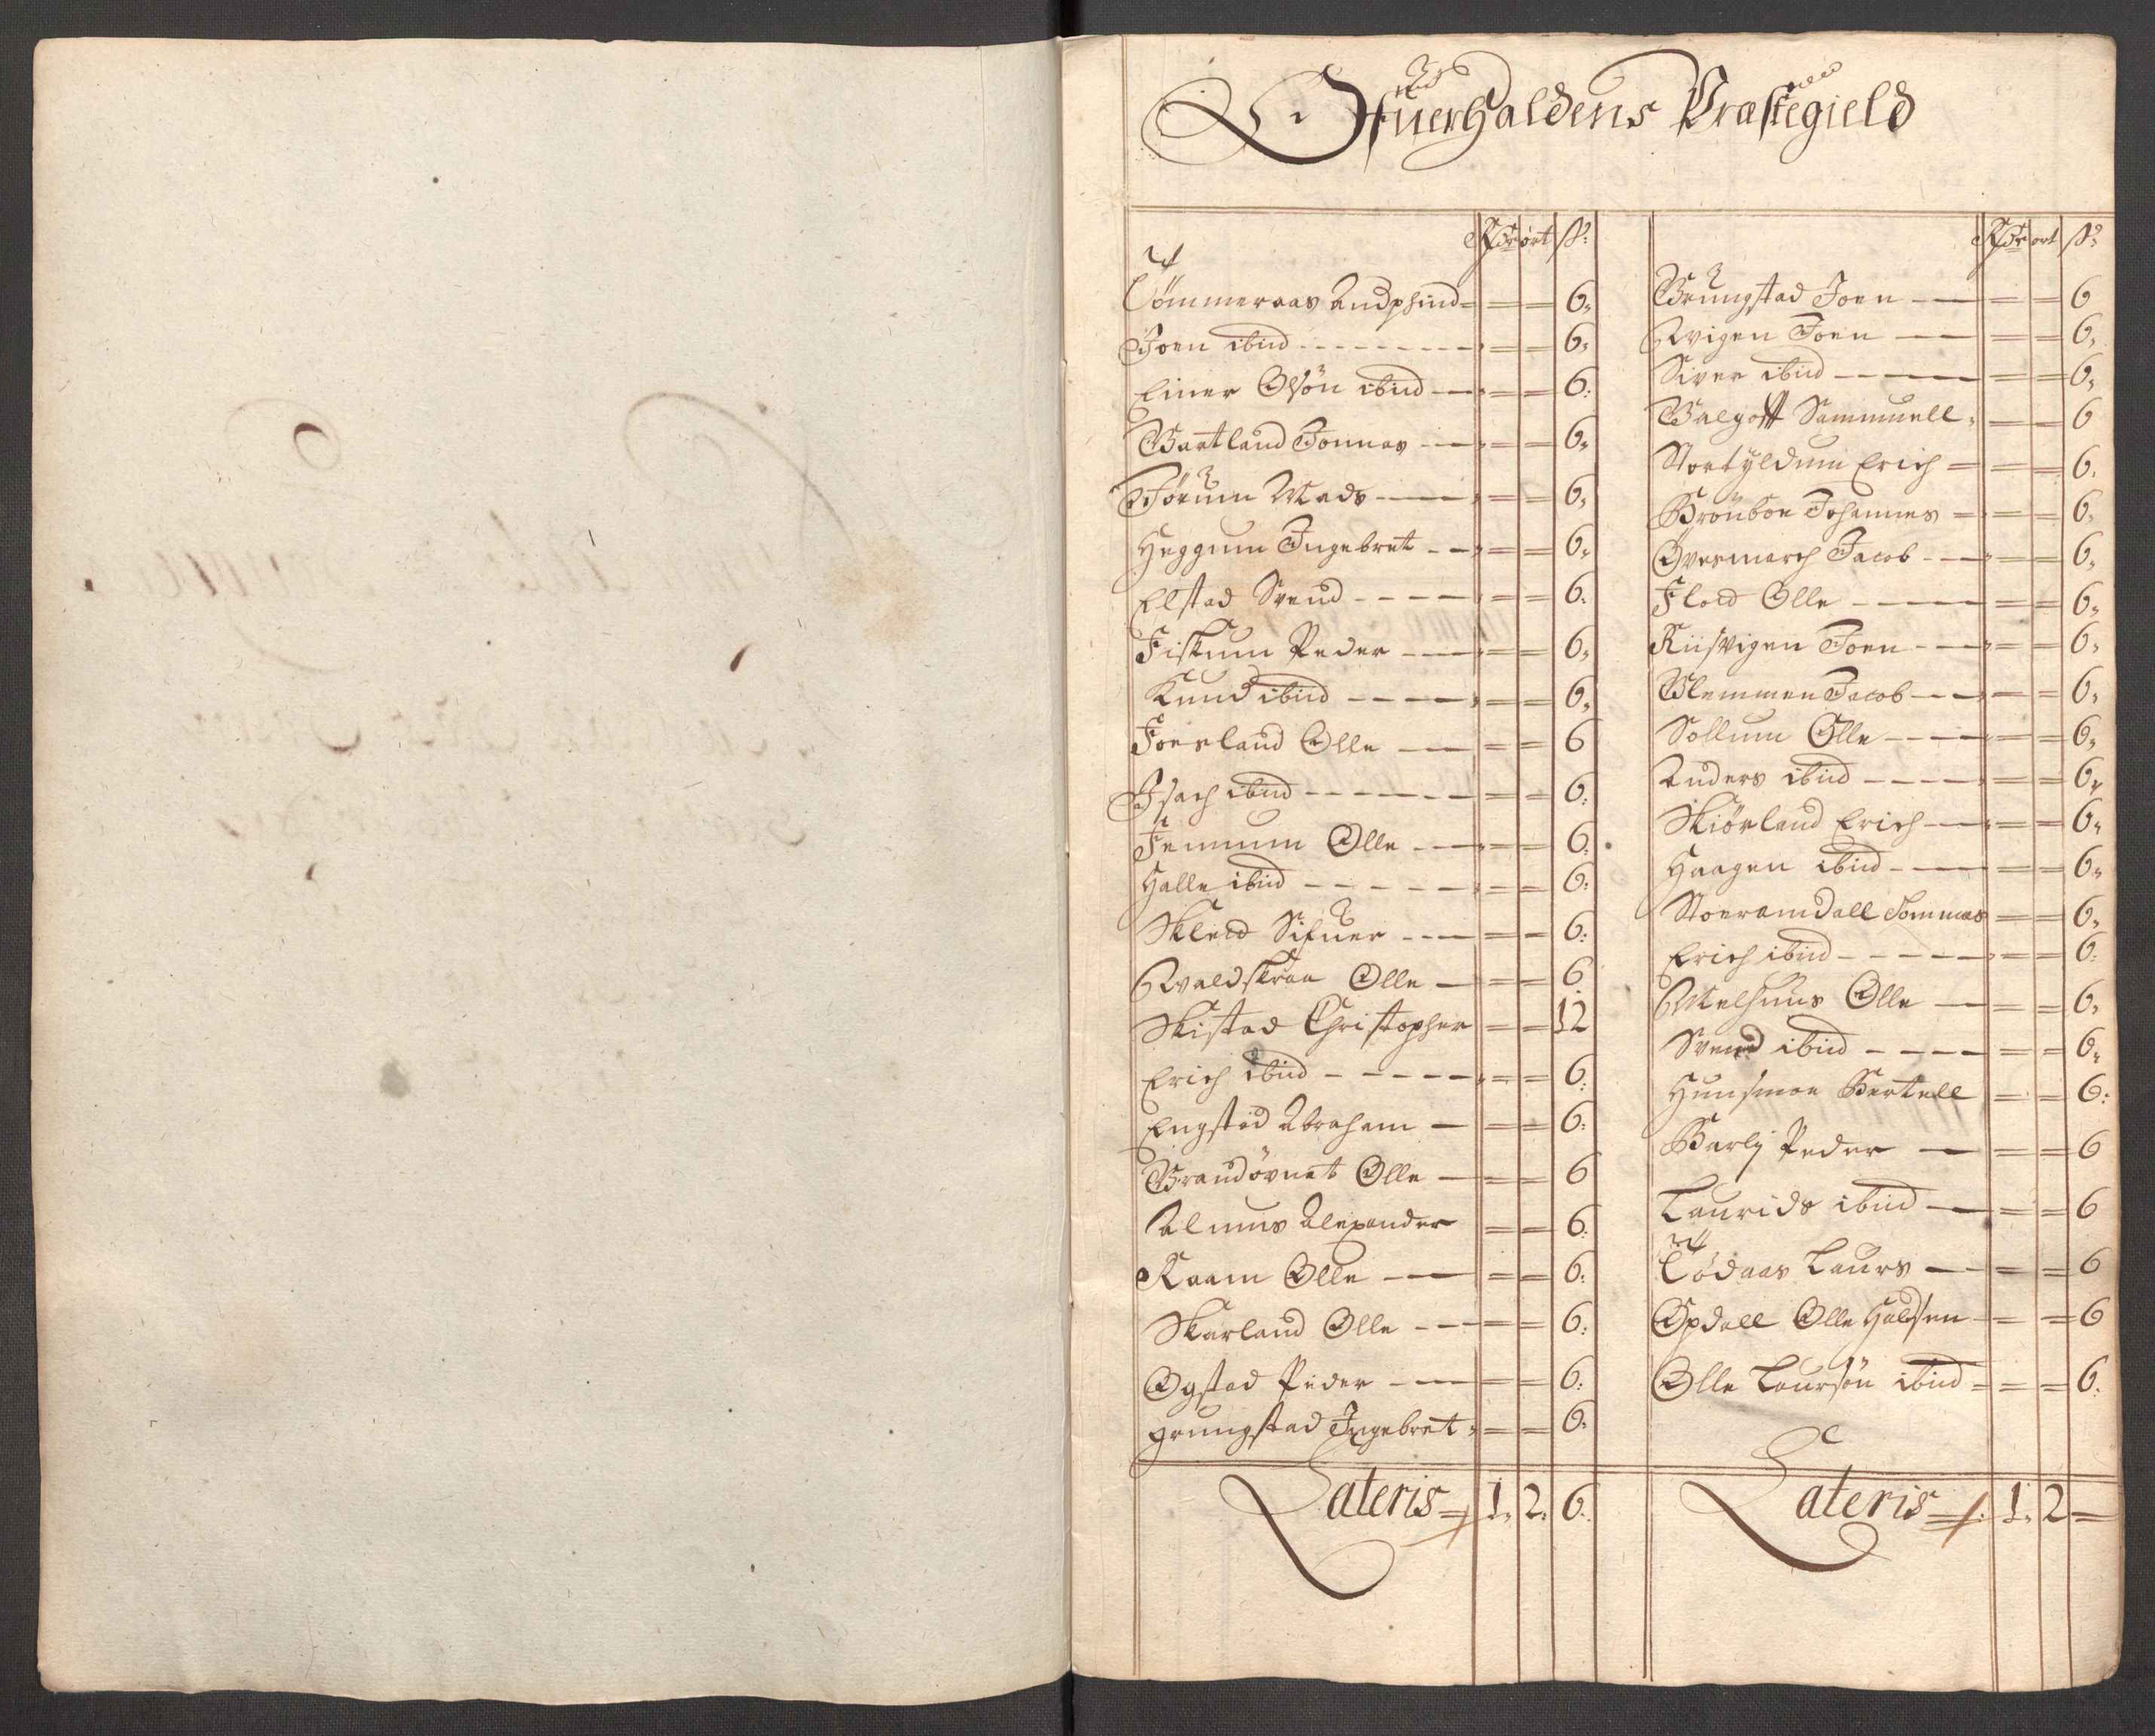 Ofuerhaldens Præstegield
Rdr ort ß:
Tømmeraas Andphind = = = 6:
Joen ibid = = 6:
Einer Olsön ibid = = 6:
Bartland Jonnas = = 6:
Tørum Mads = = 6:
Heggum Ingebret = = 6:
Elstad Svend = = 6:
Fiskum Peder = = 6:
Knud ibid = = 6:
Foesland Olle = = 6
Isach ibid = = 6:
Femnum Olle = = 6:
Halle ibid = = 6:
Skled Sifuer = = 6:
Qvaldskraa Olle = = 6:
Skistad Christopher = = 12
Erich ibid = = 6:
Engstad Abraham = = 6:
Brandövnet Olle = = 6
Almus Alexander = = 6:
Raam Olle = = 6:
Skarland Olle = = 6:
Ogstad Peder = = 6:
grungstad Ingebret = = 6:
Lateris = 1: 2: 6:
Rdr ort ß:
Grungstad Joen = = 6
Qvigen Joen = = 6:
Siver ibid = = 6:
Walgott Sammuell = = 6
Stortyldum Erich = = 6:
Brönboe Johannes = = 6:
Øvermarch Jacob = = 6:
Floed Olle = = 6:
Riisvigen Joen = = 6:
Blemmen Jacob = = 6:
Sollum Olle = = 6:
Anders ibid = = 6:
Skiörland Erich = = 6:
Haagen ibid = = 6:
Storamdall Tommas = = 6:
Erich ibid = = 6:
Melhuus Olle = = 6:
Svend ibid = = 6:
Hunsmoe Bertell = = 6:
Barlj Peder = = 6
Laurids ibid = = 6
Tödaas Laurs = = 6
Opdall Olle Haldsen = = 6
Olle Laursön ibid = = 6:
Lateris = 1: 2 =